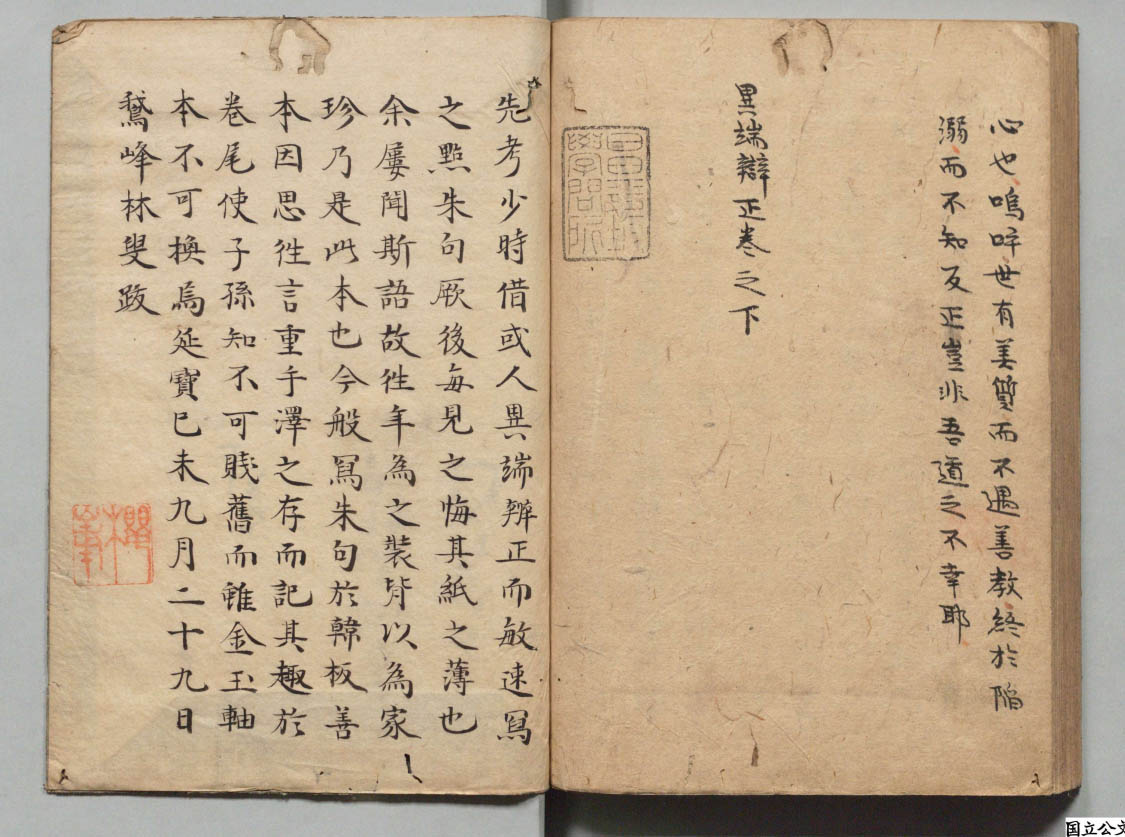 心也嗚呼世有美質而不遇善教終於陷
溺而不知反正豈非吾道之不幸耶
異端辯正卷之下
昌平坂
學問所
先考少時借或人異端辨正而敏速寫
之點朱句厥後每見之悔其紙之薄也
余屢聞斯語故徃年為之裝背以為家
珍乃是此本也今般寫朱句於韓板善
本因思徃言重手澤之存而記其趣於
卷尾使子孫知不可賤舊而雖金玉軸
本不可換焉延寶己未九月二十九日
鵞峰林叟跋
櫻峯
国立公文